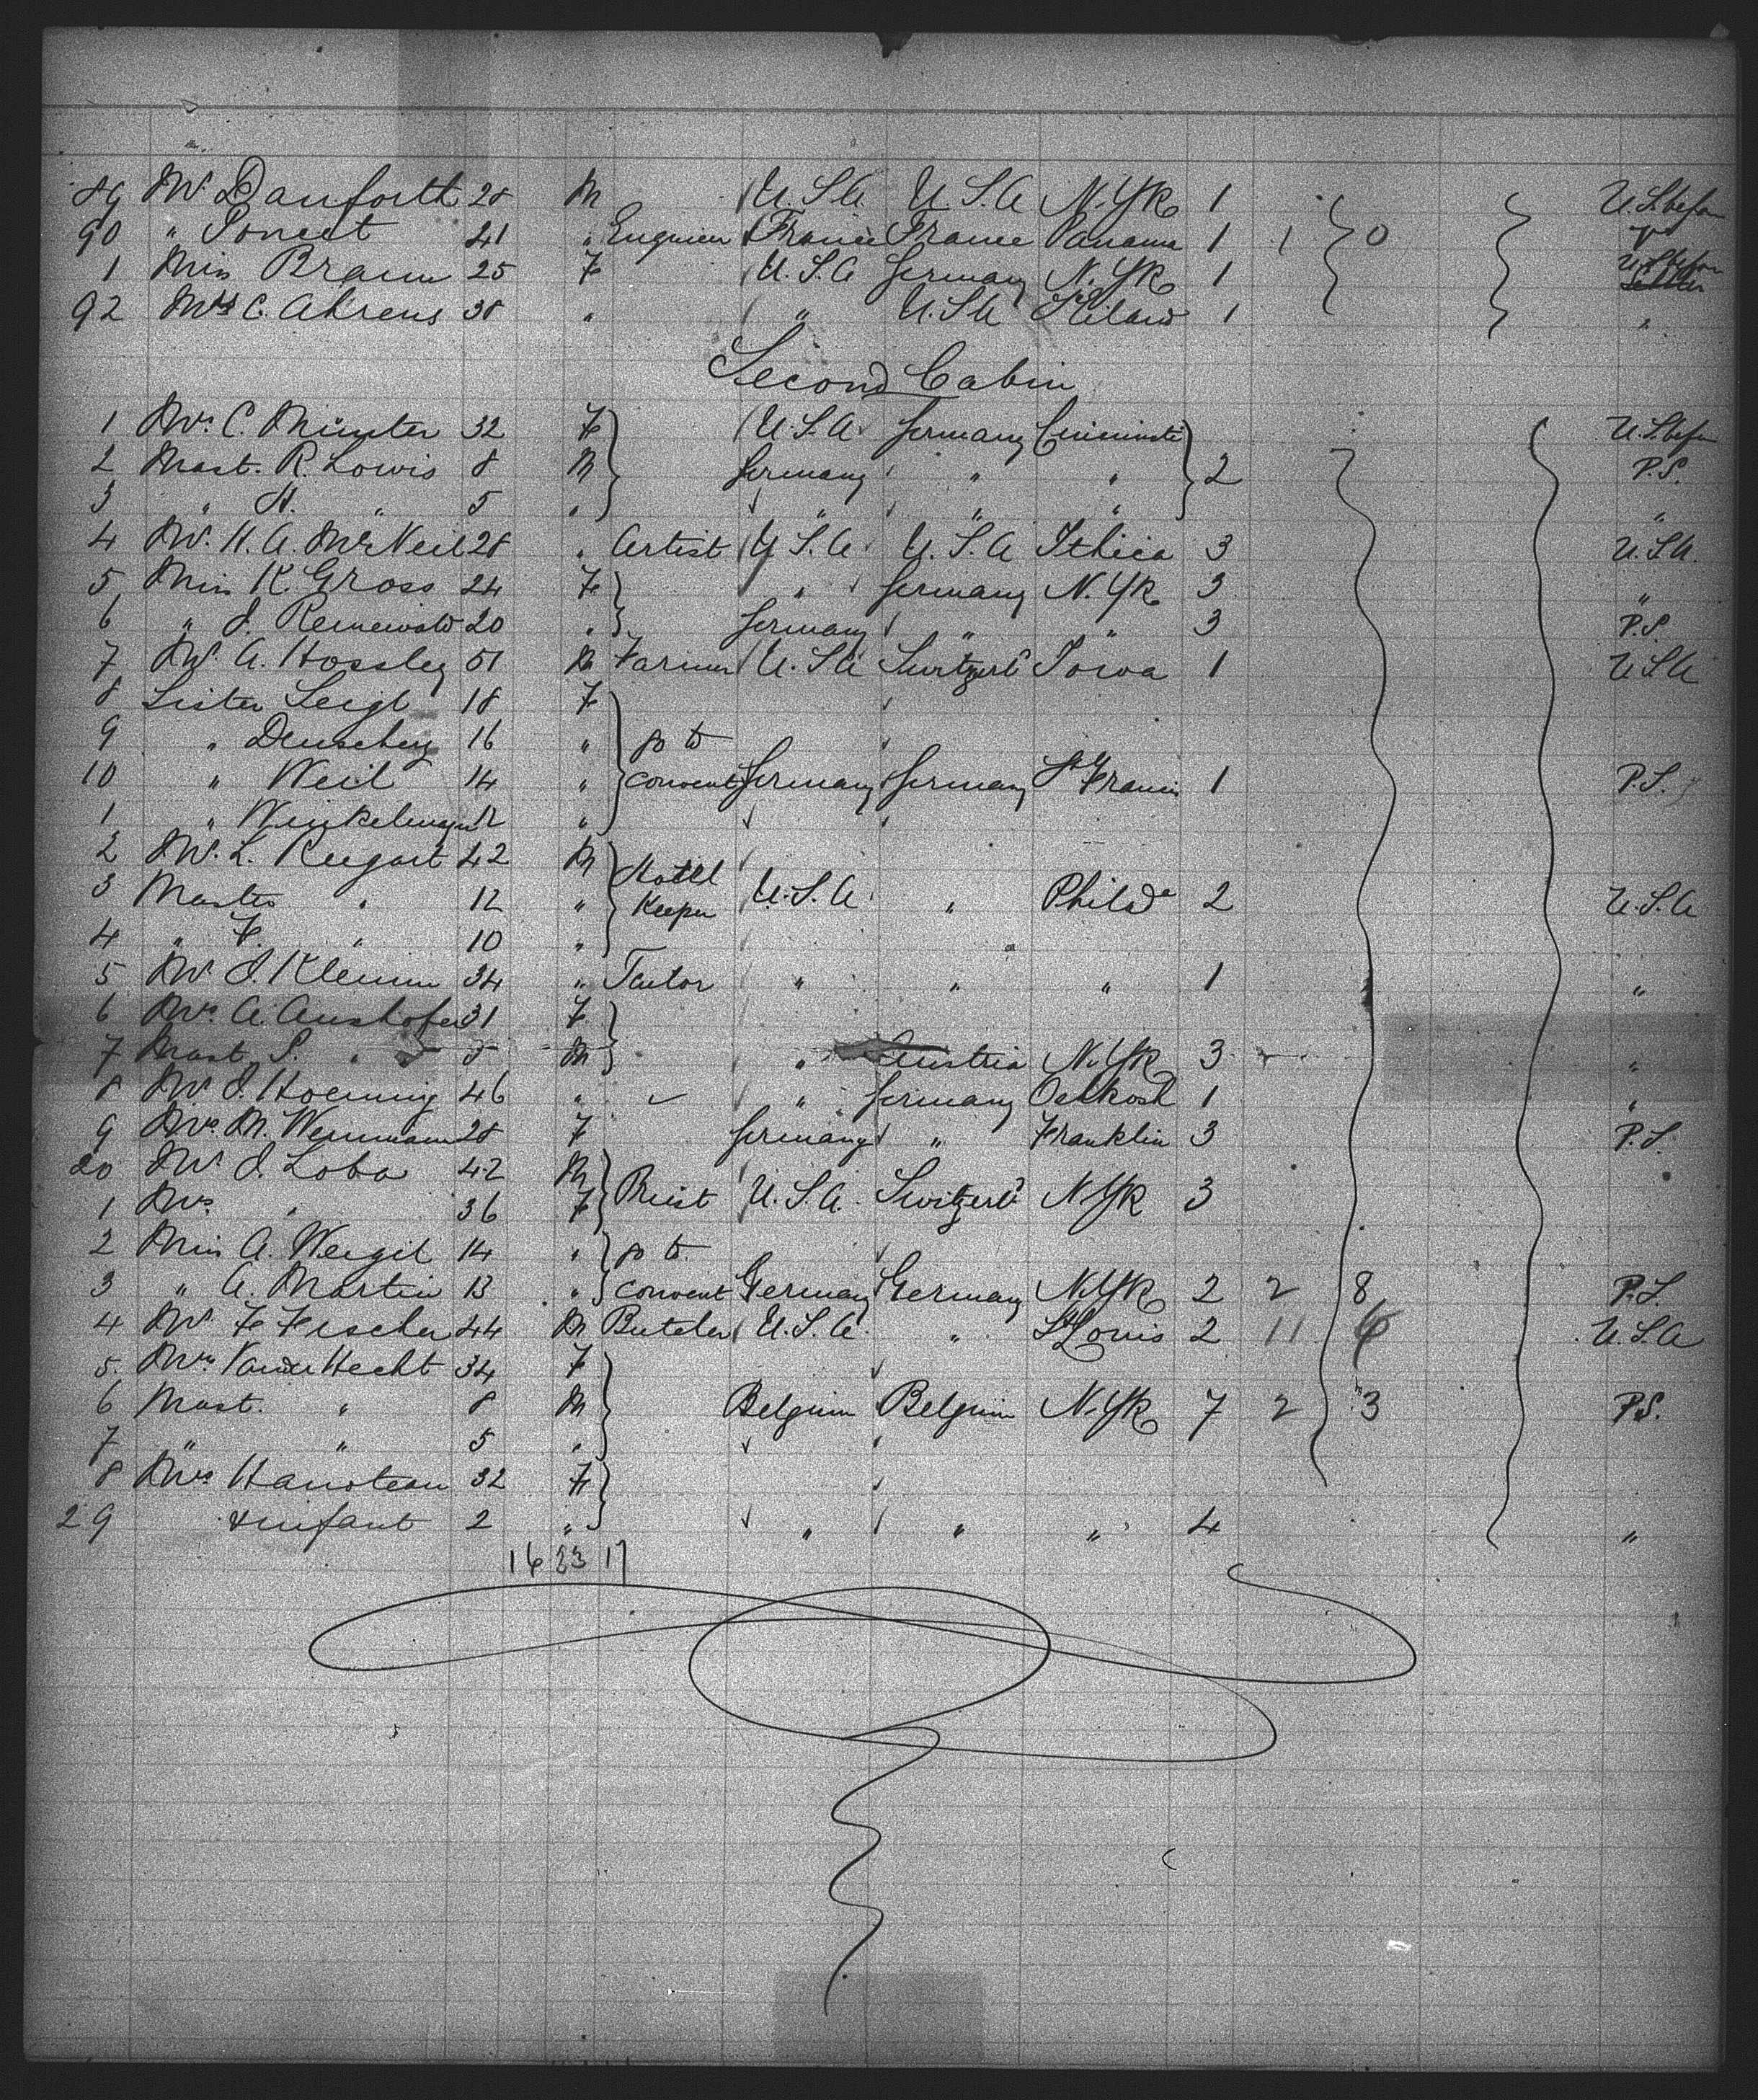 89 Mr Danforth 28 M U.S.A U.S.A N.Yk 1 U.S. befor
90 " Poncet 41 " Engineer France France Panama 1 1 0
1 Miss Braun 25 F U.S.A Germany N.Yk 1
92 Mrs C. Ahrens 38 " " U.S.A 1 "
Second Cabin
1 Mrs. C. Münter 32 F U.S.A Germany Cincinnati U.S. befor
2 Mast. R. Lowis 8 M Germany " " 2 P.S.
3 " H. " 5 " " " " "
4 Mr. H. A. McNeil 28 " Artist U.S.A. U.S.A Ithica 3 U.S.A.
5 Miss K. Gross 24 F " Germany N.Yk 3 "
6 " J. Reinewald 20 " Germany " " 3 P.S.
7 Mr. A. Hossley 51 M Farmer U.S.A Switzerld Iowa 1 U.S.A
8 Sister Leigl 18 F
9 " 16 " go to
10 " Weil 14 " convent Germany Germany St Francis 1 P.S.
1 " Winkelmayer "
2 Mr. L. Reegart 42 M Hotel
3 Master " 12 " Keeper U.S.A. " Philada 2 U.S.A
4 " F. " 10 " "
5 Mr J. Klemm 34 " Tailor " " " 1 "
6 Mrs. A. Aushofer 31 F
7 Mast. S. " 5 M " Austria N.Yk 3 "
8 Mr J. Hoenning 46 " " Germany Oshkosh 1 "
9 Mrs. M. Wenmann 28 F Germany " Franklin 3 P.S.
20 Mr J. Loba 42 M
1 Mrs " 36 F Priest U.S.A. Switzerld N.Yk 3
2 Miss A. Weigil 14 " go to
3 " A. Martin 13 " convent Germany Germany N.Yk 2 2 8 P.S.
4 Mr. F Fischer 44 M Butcher U.S.A. " St Louis 2 11 U.S.A
5 Mrs. Vander Hecht 34 F
6 Mast. " 8 M Belgium Belgium N.Yk 7 2 3 P.S.
7 " " 5 "
8 Mrs Hanotean 32 F
29 & infant 2 " " " " 4 "
16 33 17